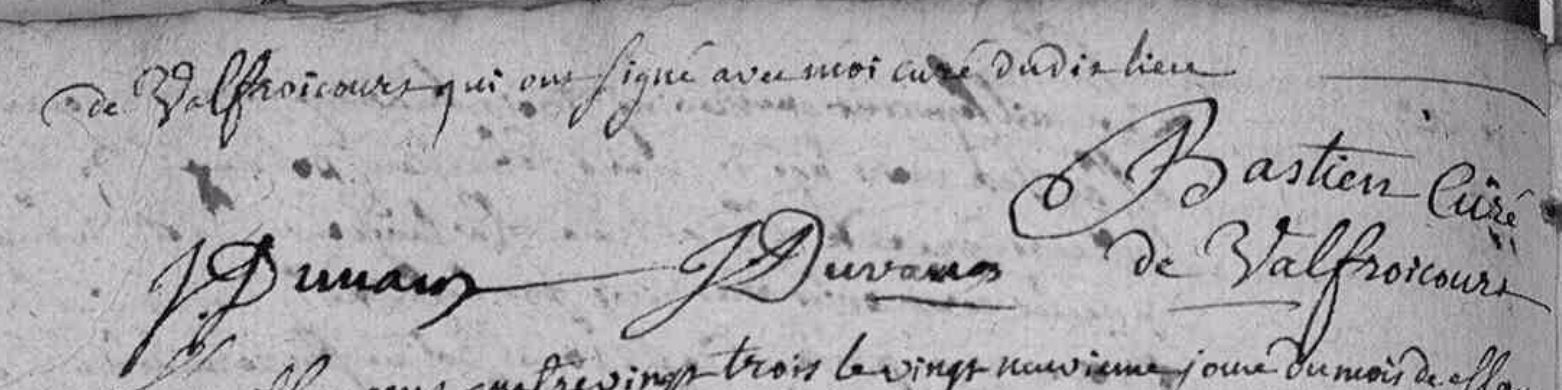 de Valfroicourt qui ont signé avec moi curé dudit lieu
Bastien Curé
J Duvaux J Duvaux de Valfroicourt
quatre vingt trois le vingt neuvieme jour du mois de